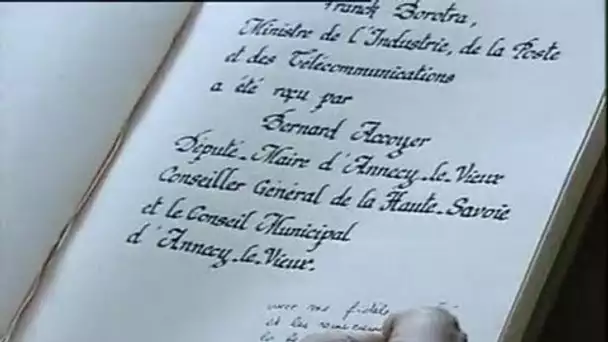 Franck Borotra,
Ministre de l'Industrie, de la Poste
et des Télécommunications
a été reçu par
Bernard Accoyer
Député-Maire d'Annecy-le-Vieux
Conseiller Général de la Haute-Savoie
et le Conseil Municipal
d'Annecy-le-Vieux.
et les